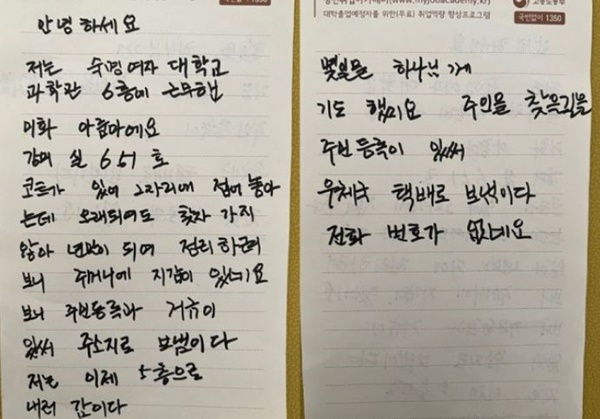 안녕 하세요
저는 숙명여자 대학교
과학관 6층에 근무했
미화 아줌마에요
강의 실 651 호
코트가 있어 그자리에 접어 놓아
는데 오래되여도 찾자 가지
않아 년말이 되여 정리 하려
보니 주머니에 지갑이 있네요
보니 주민등록과 거규이
있써 주소지로 보냄이다
저는 이제 5층으로
내려 갑이다
대학졸업예정자를 위한(무료) 취업역량 향상프로그램
국번없이 1350
몇일을 하나님 께
기도 했지요 주인을 찾을길을
주민 등록이 있써
우체국 택배로 보냄이다
전화 번호가 없지네요